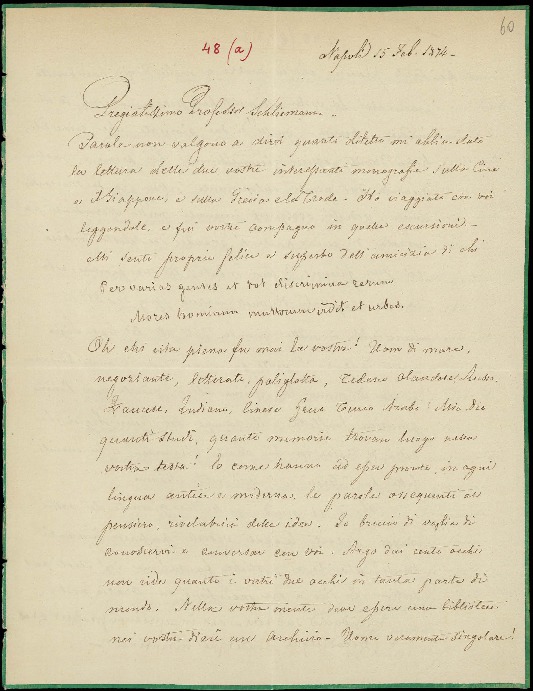 60
48 (a)
Napoli 15 Feb. 1874 -
Pregiatissimo Professor Schliemann..
Parole non valgono a dirvi quanto diletto mi abbia dato
la lettura delle due vostre interessanti monografie sulla Cina
e il Giappone, e sulla Grecia e la Troade. Ho viaggiato con voi
leggendole, e fui vostro compagno in queste escursioni -
Mi sento proprio felice e superbo dell'amicizia di chi
Per varias gentes et tot discrimina rerum
Mores hominum multorum vidit et urbes.
Oh che vita piena fu mai la vostra! Uom di mare,
negoziante, letterato, poliglotta, Tedesco Olandese
Francese, Indiano, Cinese Greco Turco Arabo! Mio Dio
quanti studi, quante memorie trovan luogo nella
vostra testa! E come hanno ad esser pronte, in ogni
lingua antica e moderna, le parole ossequenti al
pensiero, rivelatrici delle idee. Io brucio di voglia di
conoscervi e conversar con voi. Argo dai cento occhi
non vide quanto i vostri due occhi in tanta parte di
mondo. Nella vostra mente deve essere una biblioteca
nei vostri diari un archivio - Uomo veramente singolare!